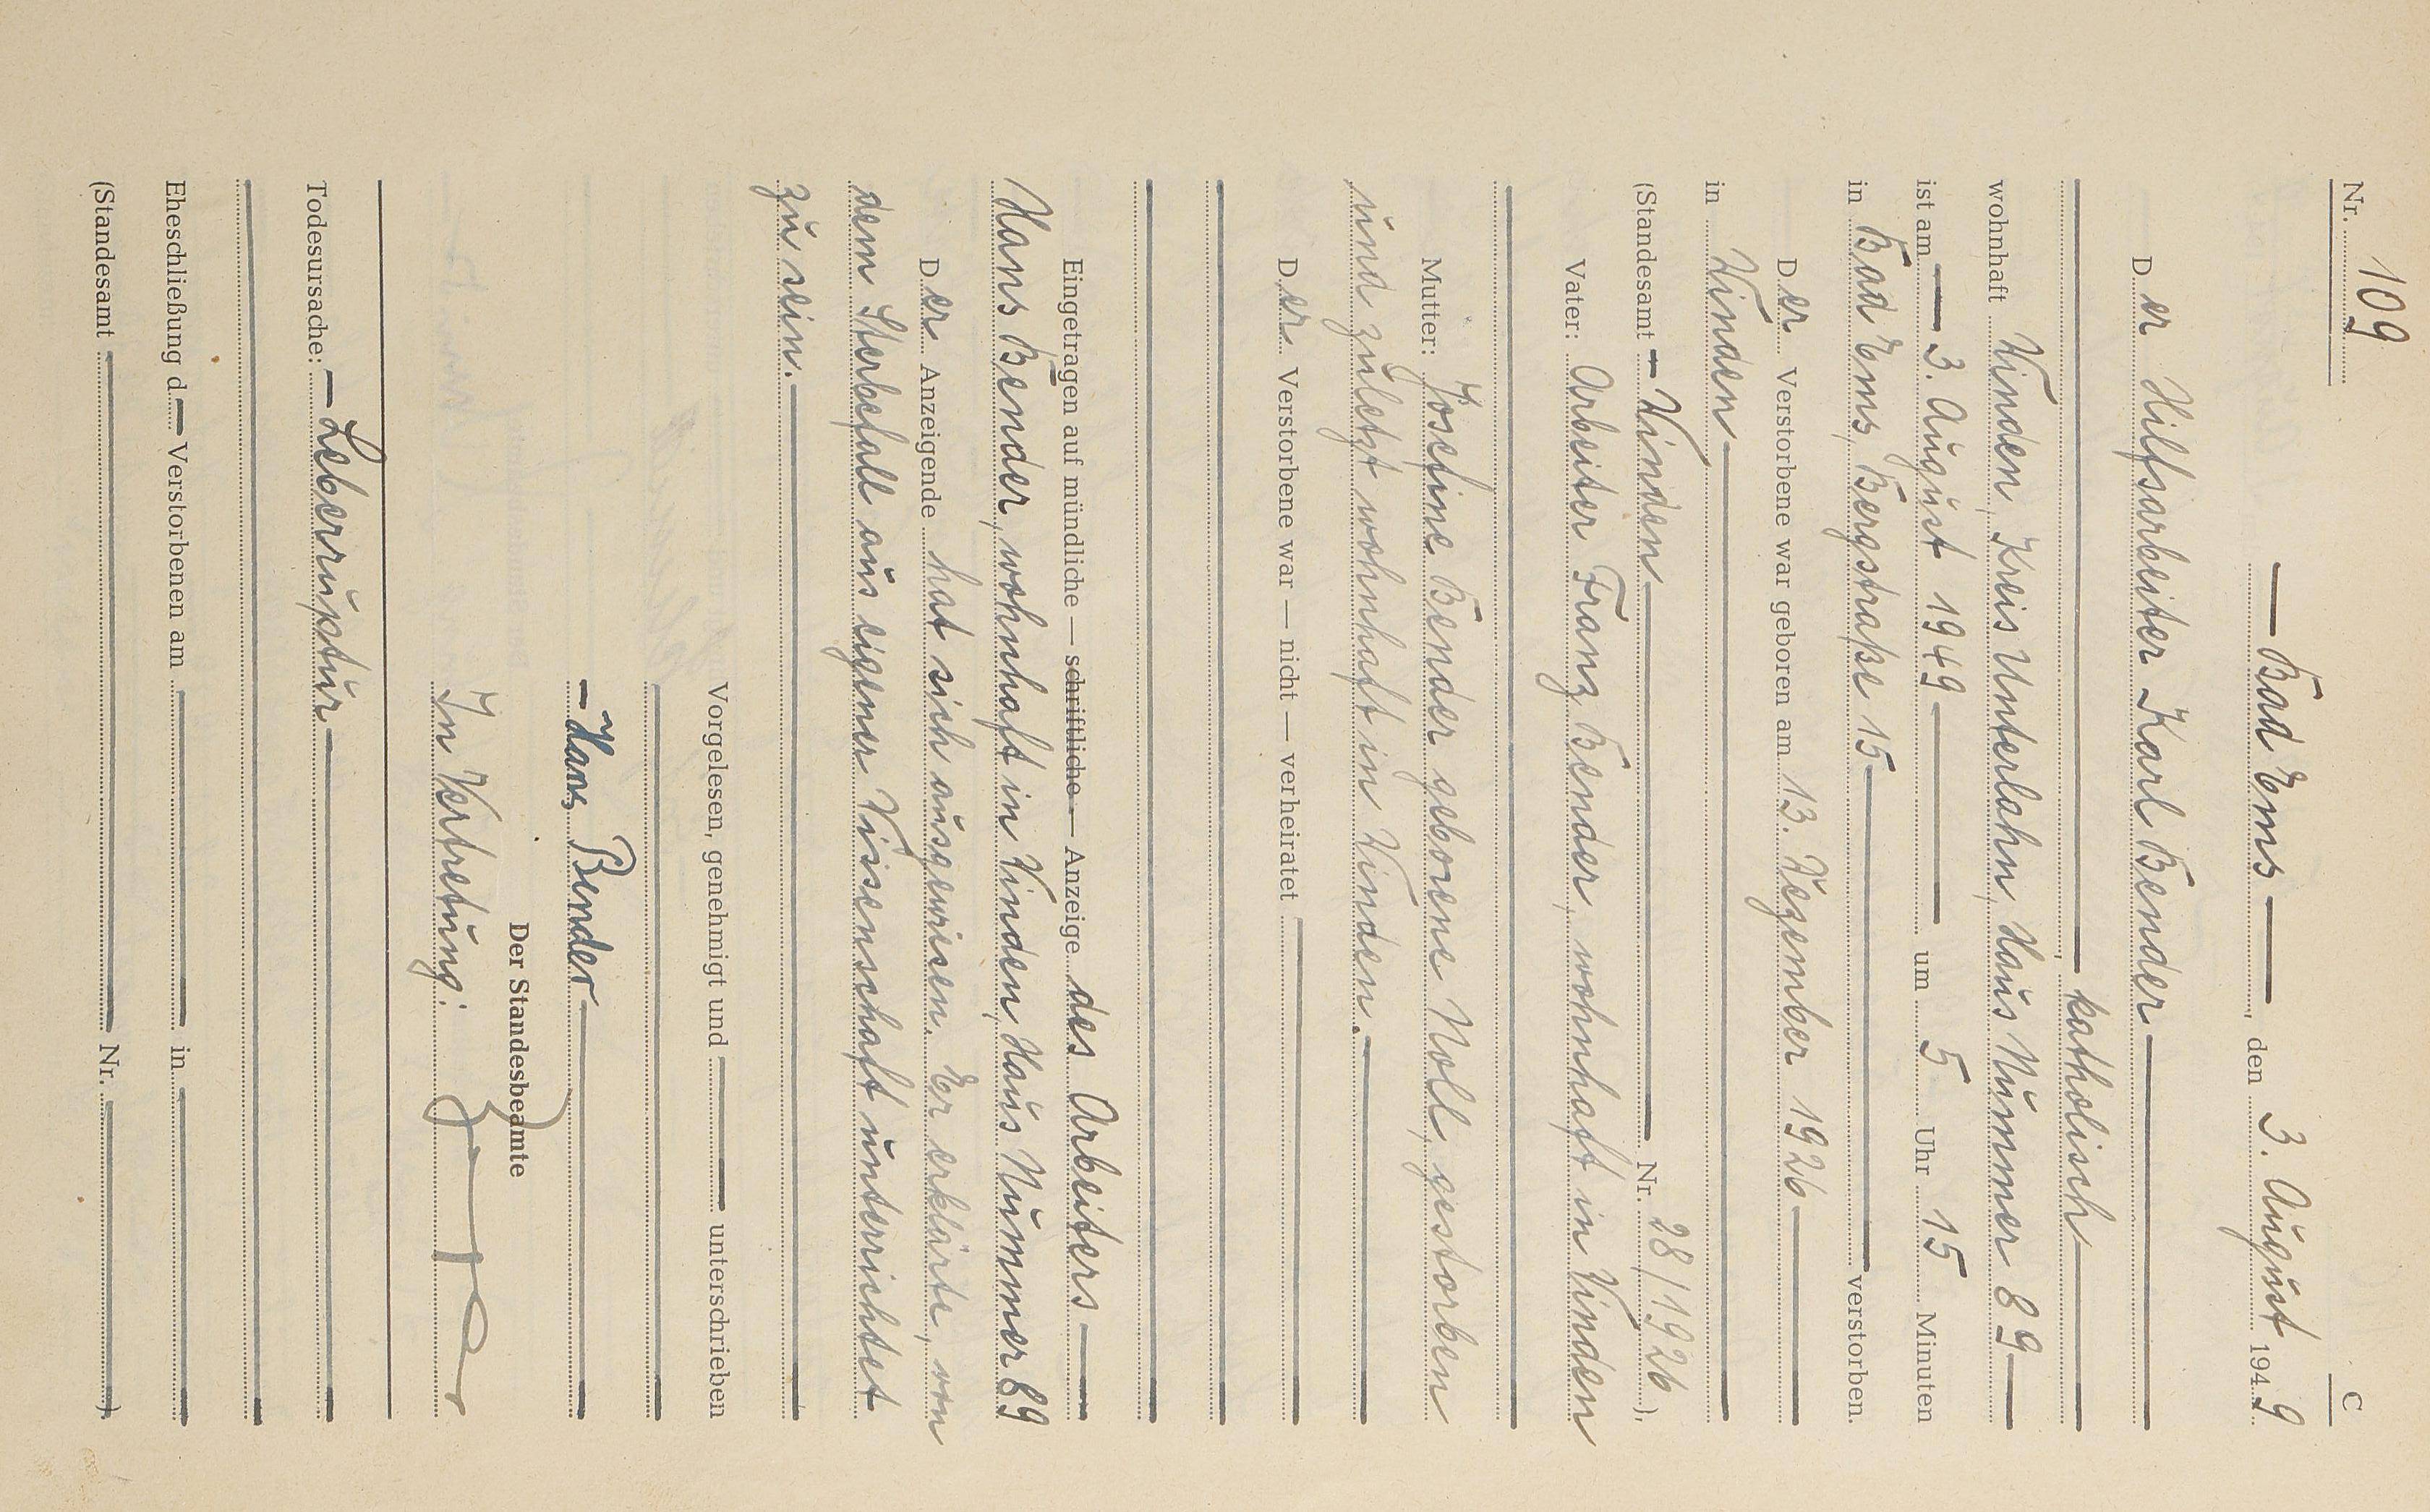 Nr. 109
C
Bad Ems, den 3. August 1949
Der Hilfsarbeiter Karl Bender
, katholisch
wohnhaft Winden, Kreis Unterlahn, Haus Nummer 89
ist am 3. August 1949 um 5 Uhr 15 Minuten
in Bad Ems, Bergstraße 15 verstorben.
Der Verstorbene war geboren am 13. Dezember 1926
in Winden
(Standesamt Winden Nr. 28/1926),
Vater: Arbeiter Franz Bender, wohnhaft in Winden
Mutter: Josefine Bender geborene Noll, gestorben
und zuletzt wohnhaft in Winden.
Der Verstorbene war — nicht — verheiratet
Eingetragen auf mündliche — schriftliche — Anzeige des Arbeiters
Hans Bender, wohnhaft in Winden, Haus Nummer 89
Der Anzeigende hat sich ausgewiesen. Er erklärte, von
dem Sterbefall aus eigener Wissenschaft unterrichtet
zu sein.
Vorgelesen, genehmigt und unterschrieben
Hans Bender
Der Standesbeamte
In Vertretung:
Todesursache: Leberruptur
Eheschließung d Verstorbenen am in
(Standesamt Nr. )